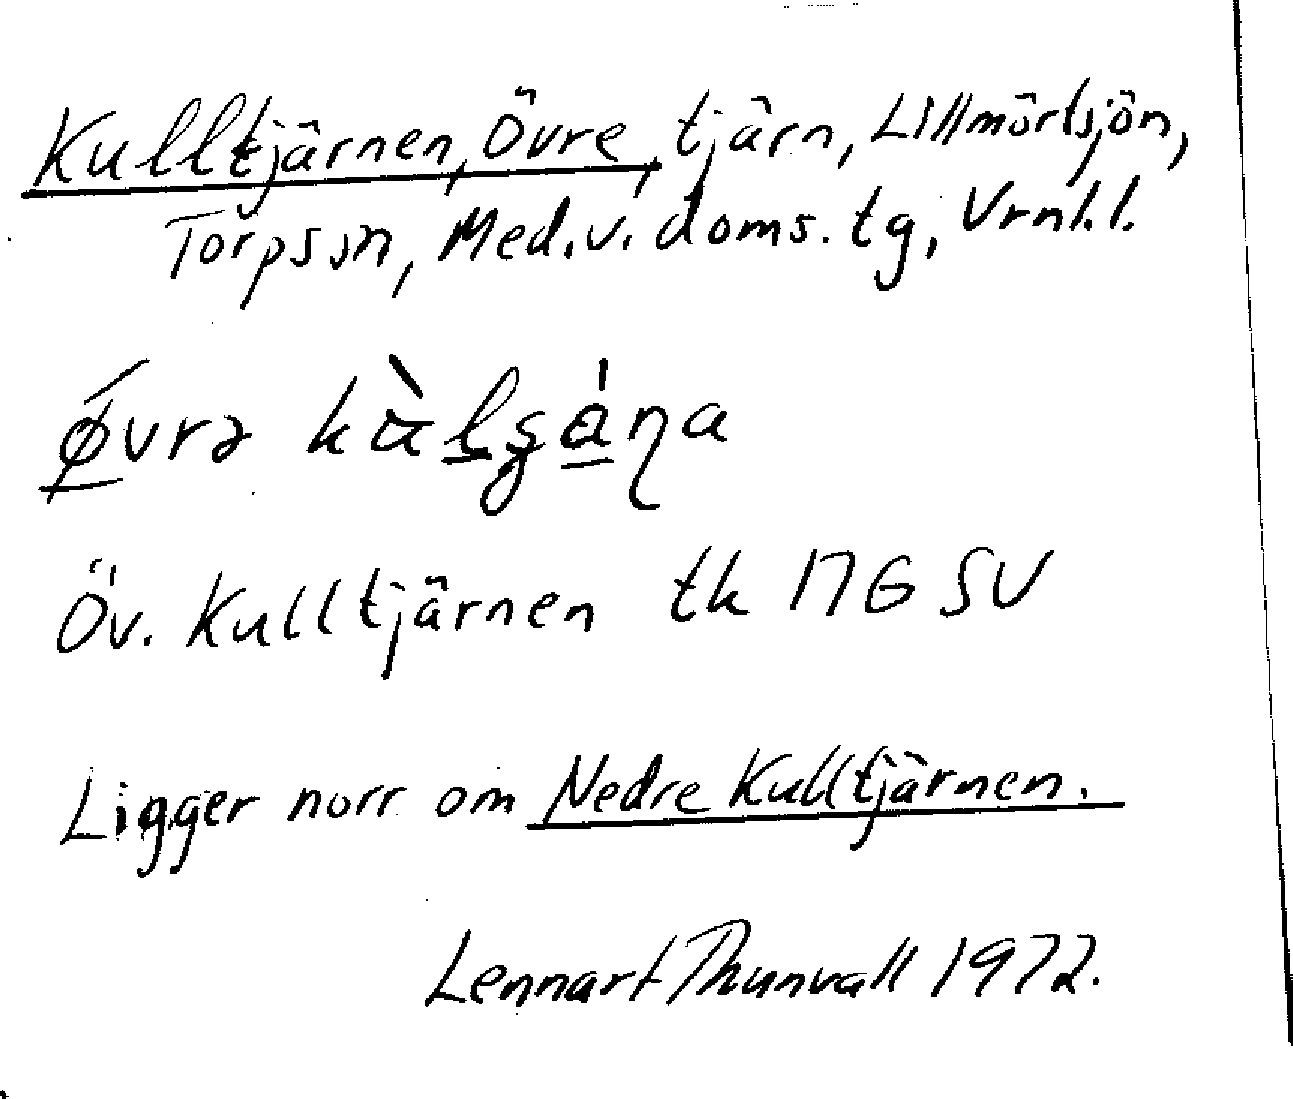 Kulltjärnen, Övre, tjärn, Lillmörtsjön,
Torps sn, Med. v. doms. tg, Vrnl. l.
Öv. Kulltjärnen tk 17G SV
Ligger norr om Nedre Kulltjärnen.
Lennart Thunvall 1972.